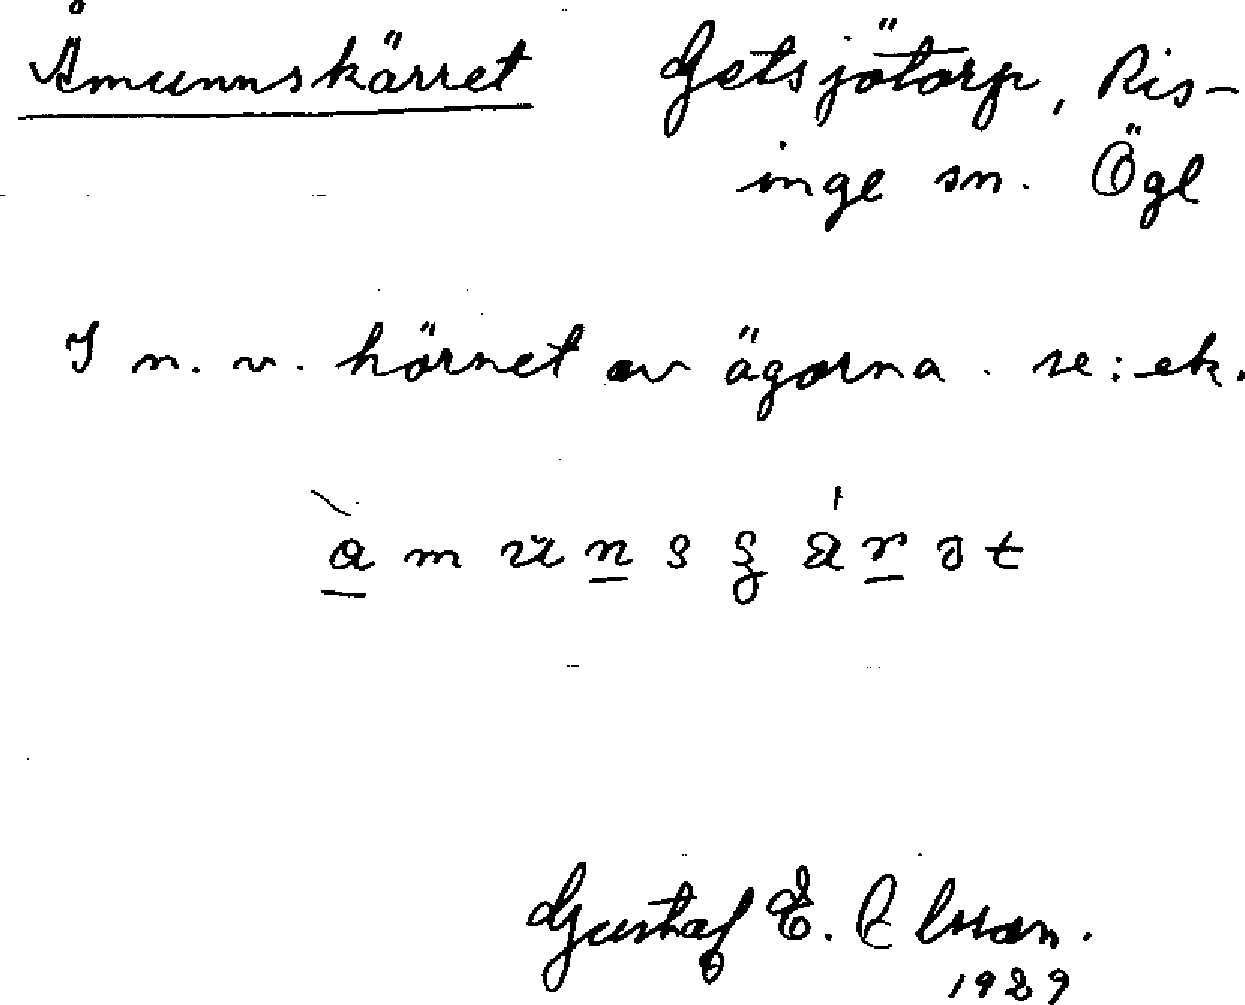 Åmunnskärret Getsjötorp, Ris-
inge sn. Ögl
I n.v. hörnet av ägorna. se: ek.
Gustaf E.
1929